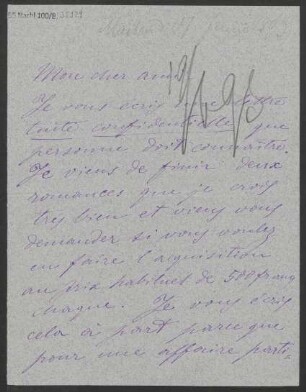 Mon cher ami
Je vous écris une lettre
toute confidentielle que
personne doit connaître.
Je viens de finir deux
romances que je crois
très bien et viens vous
demander si vous voulez
en faire l'acquisition
au prix habituel de 500 francs
chaque. Je vous écris
cela à part parce que
pour une affaire parti